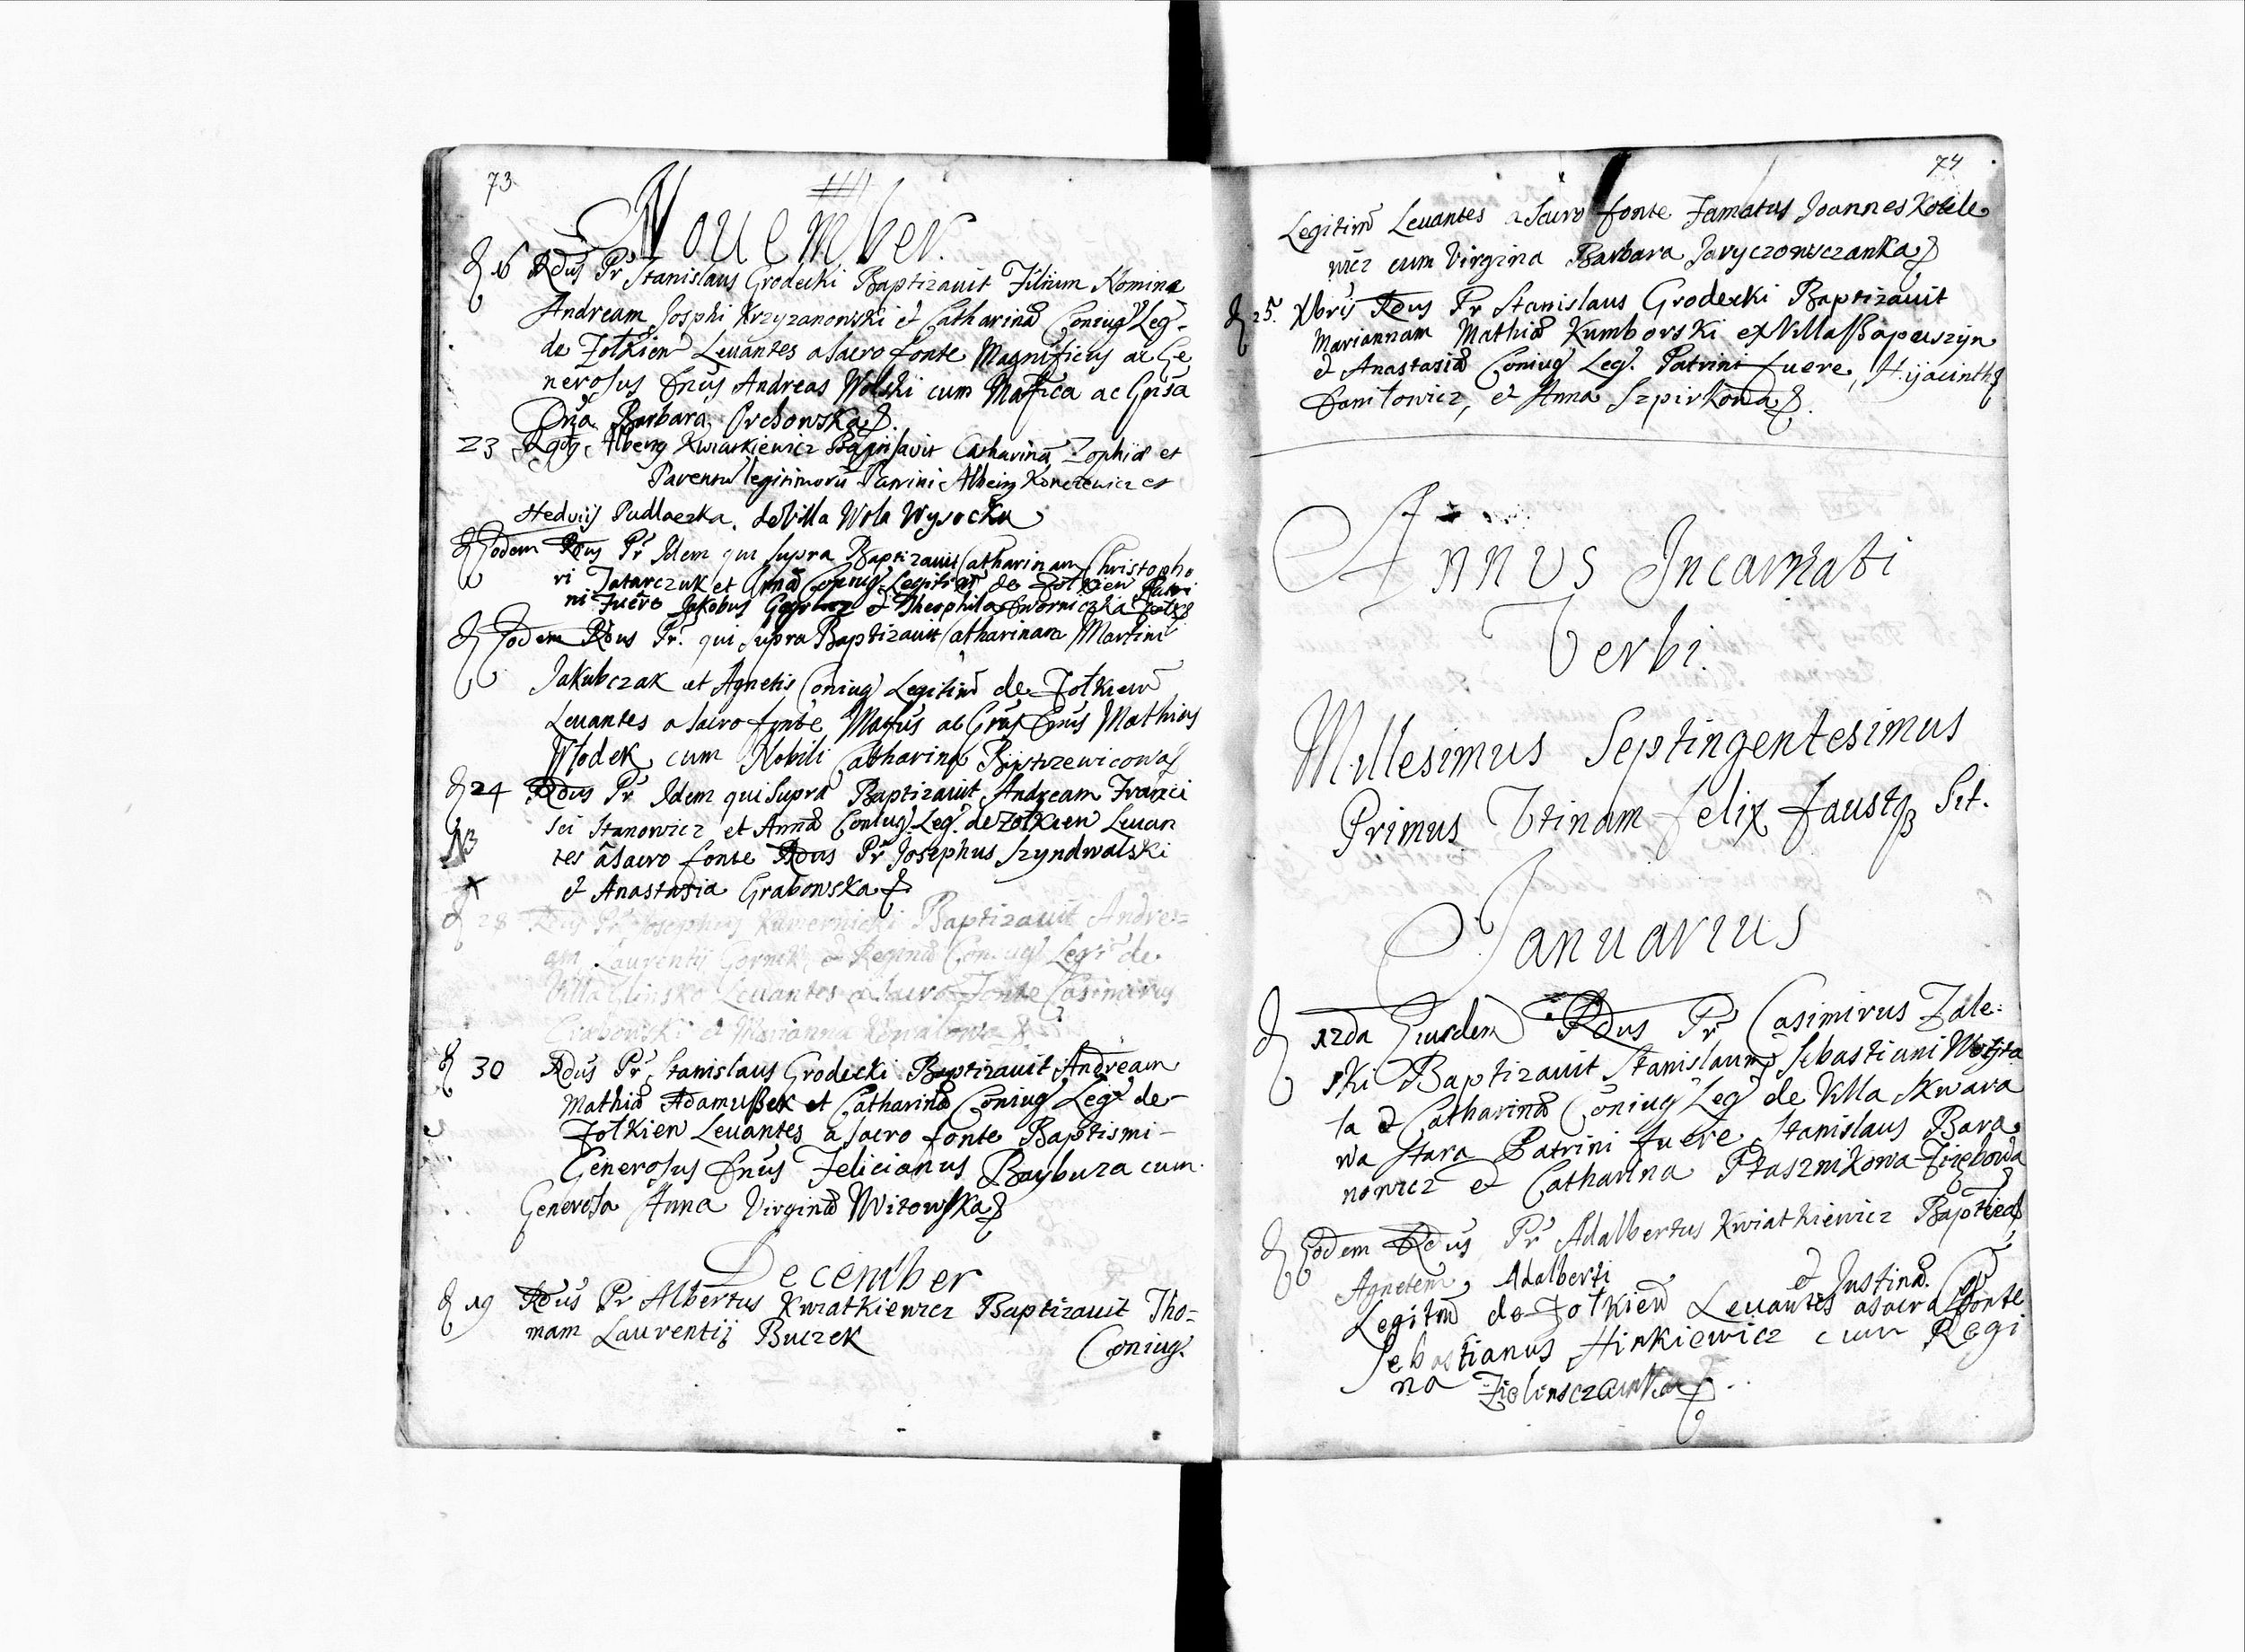 73
November
16 Rdus Pr Stanislaus Grodecki Baptizauit Filium Nomine
Andream Josphi Krzyzanowski et Catharina Coniug Leg-
de Zolkiew Leuantes a Sacro fonte Magnificus ac Ge
nerosus Dnus Andreas Wolski cum Mafica ac Gnsa
Dna Barbara Orchowska
23 Albertg Kwiatkiewicz Catharina Zophia et
Parentu legitimoru Patrini Albertg et
Hedvigs Pudlaczka. de Villa Wola Wysocka
Eodem Rdus Pr Idem qui supra Baptizauit Catharinam Christopho
ri Tatarczuk et Anna Coniug Legitim de Zolkiew Patri
ni Fuere Jakobus et Theophila
Eodem Rdus Pr. qui supra Baptizauit Catharinam Martini
Jakubczak et Agnetis Coniug Legitim de Zolkiew
Leuantes a Sacro fonte Mafus ac Gnus Dnus Mathias
Wlodek cum Nobili Catharina Bistrzewicowa
24 Rdus Pr Idem qui supra Baptizauit Andream Franci
sci Stanowicz et Anna Coniug Leg. de Zolkiew Leuan
NB
tes a Sacro fonte Rdus Pr Josephus Szyndwalski
et Anastasia Grabowska
28 Rdus Pr Josephus Baptizauit Andre=
am Laurentij Gornik et Regina Coniug Legi de
Villa Glinsko Leuantes a Sacro Fonte Casimirus
Grabowski et Marianna Kowalowa
30 Rdus Pr Stanislaus Grodecki Baptizauit Andream
Mathia Adamussek et Catharina Coniug Leg de-
Zolkiew Leuantes a Sacro fonte Baptismi-
Generosus Dnus Felicianus Baybuza cum
Generosa Anna Virgina Witowska
December
19 Rdus Pr Albertus Kwiatkiewicz Baptizauit Tho=
mam Laurentij Buczek
Coniug.
74
Legitim Leuantes a Sacro fonte Famatus Joannes Kobile
wicz cum Virgina Barbara Jaryczowsczanka
25. Xbris Rdus Pr Stanislaus Grodecki Baptizauit
Mariannam Mathia Kumborski ex Villa Sapuszyn
et Anastasia Coniug Leg. Patrini fuere, Hijacinthg
Danilowicz, et Anna Szpirkowa
Annus Incarnati
Verbi.
Millesimus Septingentesimus
Primus Vtinam felix faustq Sit.
Januarius
12da Eiusdem Rdus Pr Casimirus Zale=
ski Baptizauit Stanislaum Sebastiani Woyta
la et Catharina Coniug Leg de Villa Skwara
wa Stara Patrini fuere Stanislaus Bara
nowicz et Catharina Ptasznikowa
Eodem Rdus Pr Adalbertus Kwiatkiewicz Baptiza
Agnetem Adalberti et Justina. Cg
Legitim de Zolkiew Leuantes a sacro fonte
Sebastianus Hinkiewicz cum Regi
na Zielinsczanka